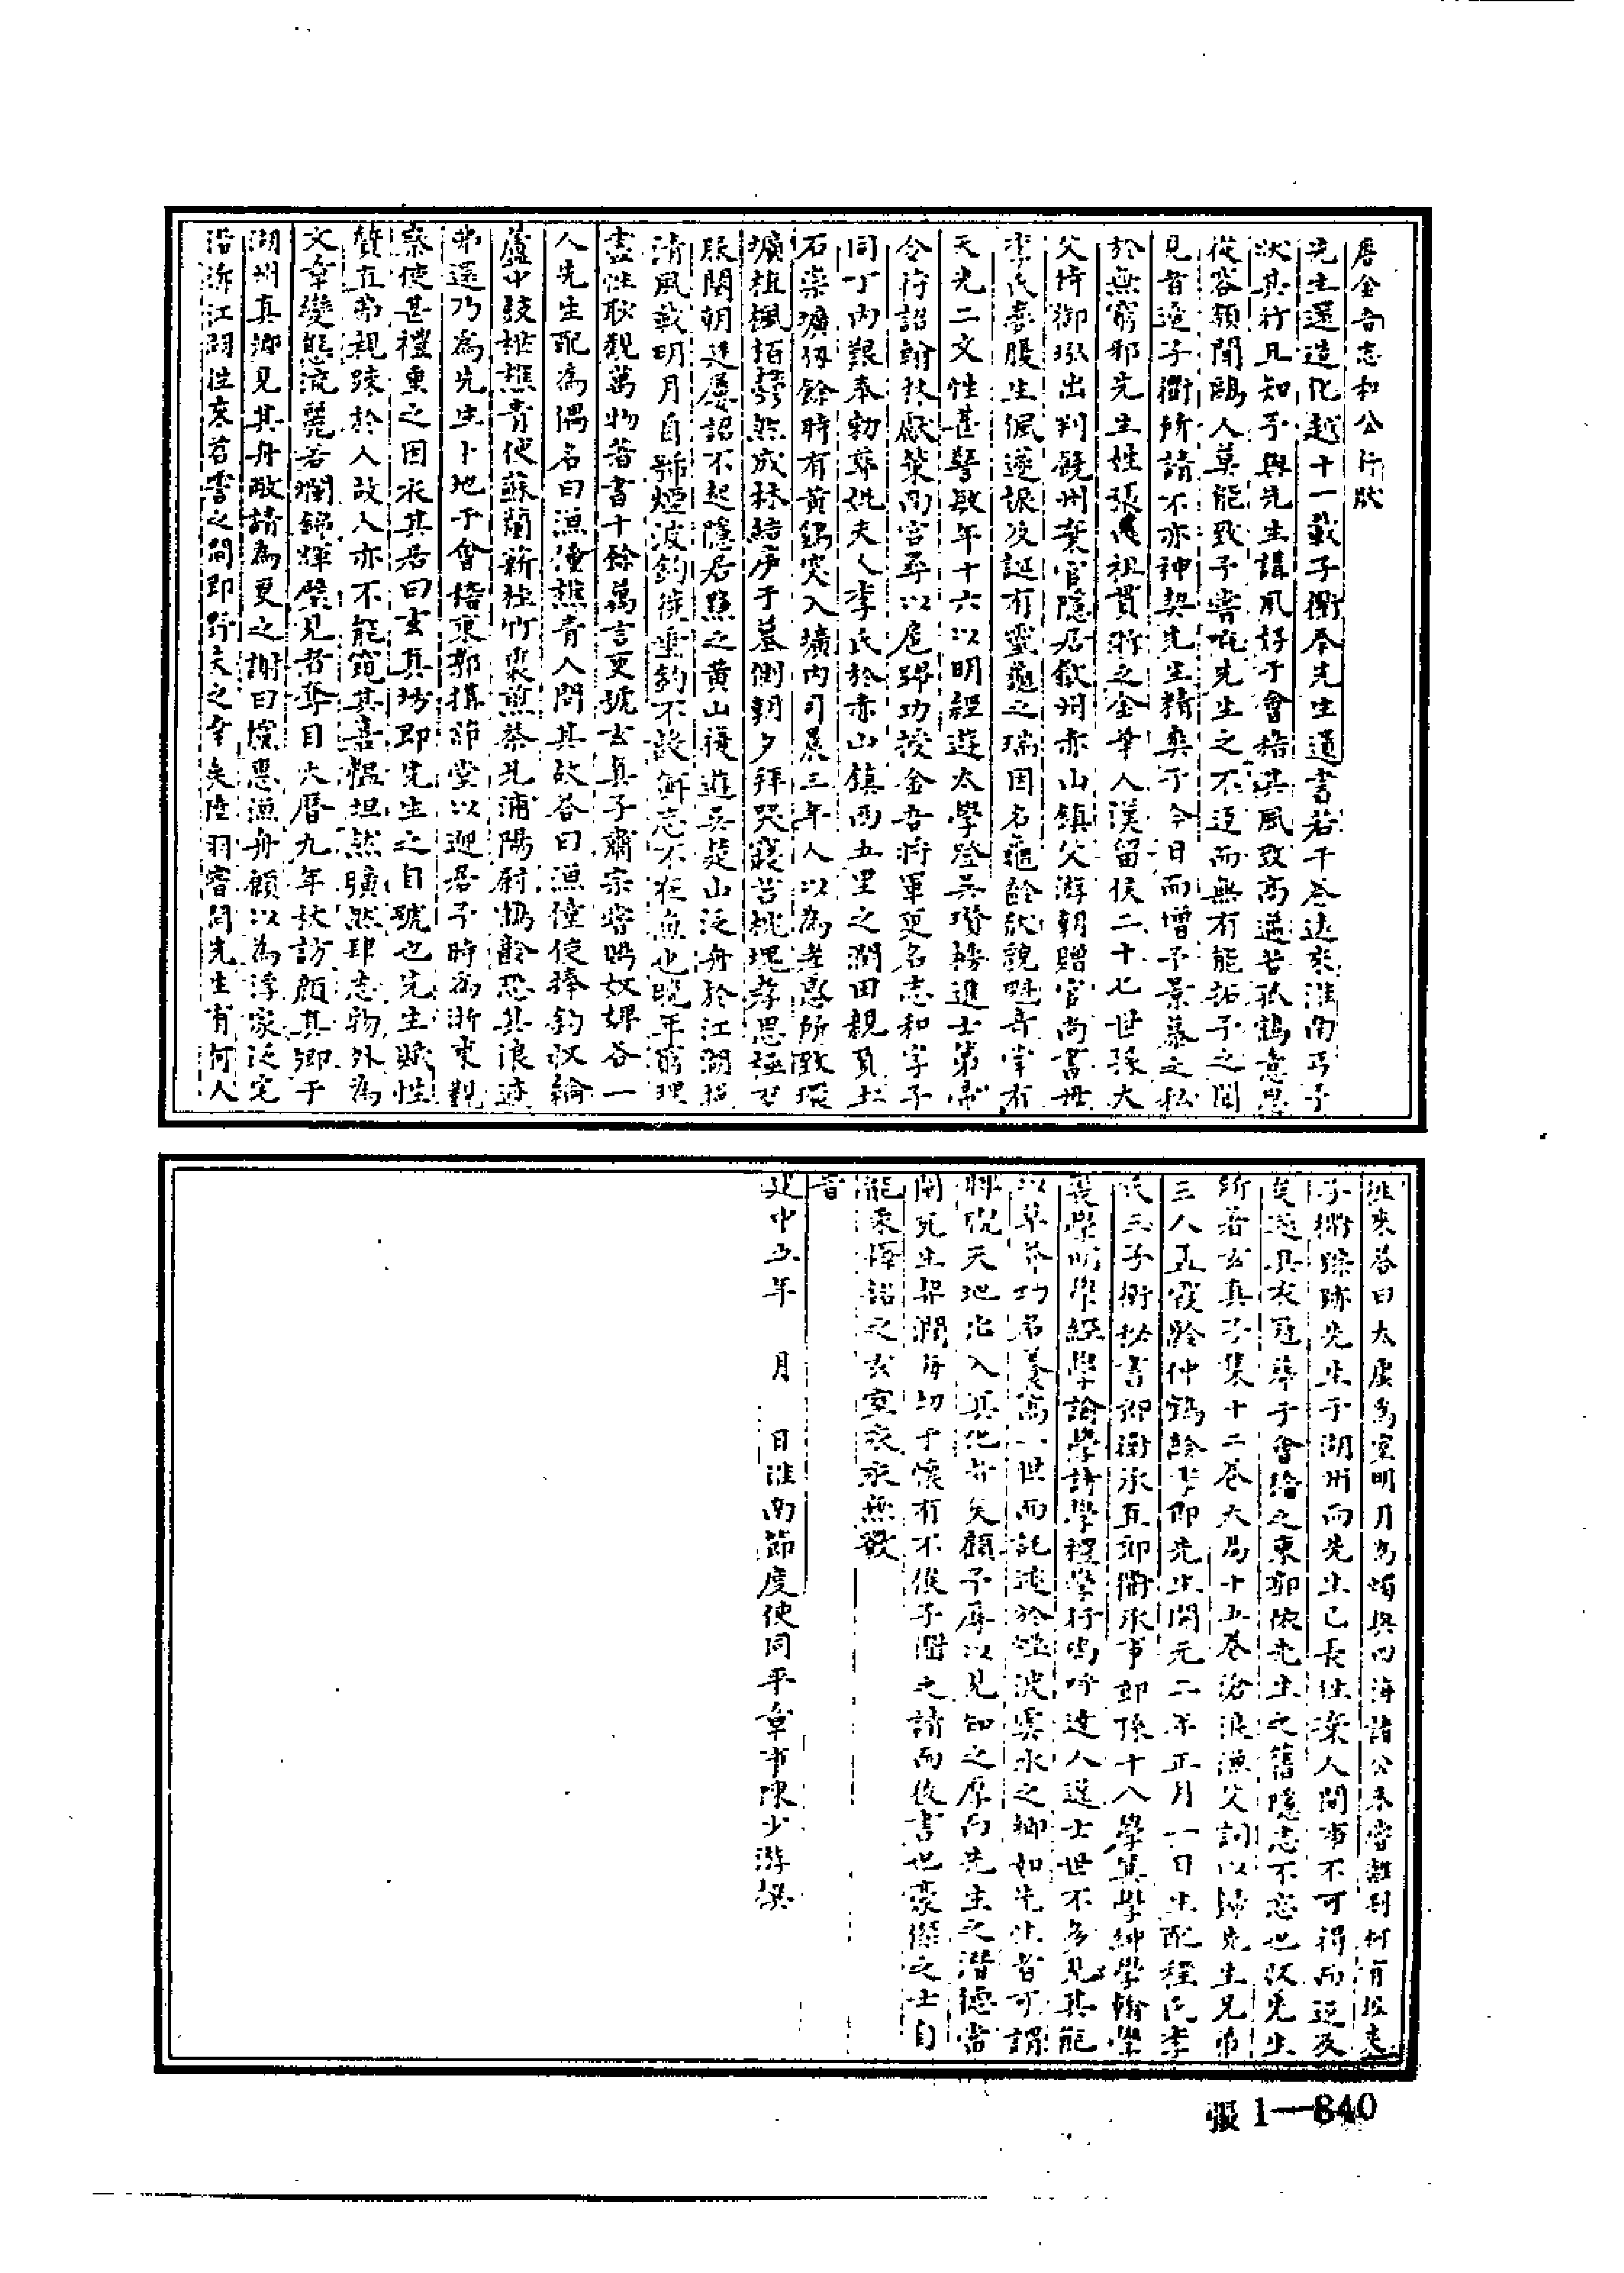 唐金吾志和公行狀
先生還造化越十一載子衢奉先生遺書若干卷迭來淮南丐予
狀其行且知予與先生講風好于會稽其風致高邁若孤鶴意思
從容類閒鷗人莫能致予嘗吼先生之不返而無有能拓予之聞
見者迨子衢所請不亦神契先生精爽于今日而增予景慕之私
於無窮邪先生姓張氏祖貫浙之金華人漢留侯二十七世孫大
父侍御 出判 州棄官隱居歙州赤山鎮父游朝贈官尚書母
李氏夢腹生楓遂娠及誕有靈龜之瑞因名龜齡狀貌魁奇掌有
天光二文性甚警敏年十六以明經遊太學登吳瓚榜進士第帝
令待詔翰林 策南宮尋以扈蹕功授金吾將軍更名志和字子
同丁內艱奉勅葬妣夫人李氏於赤山鎮西五里之潤田親負土
石築壙 餘時有黃鵠突入壙內司晨三年人以為孝感所致環
壙植楓栢 然成林結庐于墓側朝夕拜哭寢苫枕塊孝思極切
服闋朝廷屡詔不起隱居黟之黄山復遊吳楚山泛舟於江湖招
清風載明月自號煙波釣徒垂釣不設餌志不在魚也晚年窮理
盡性耿觀萬物著書十餘萬言更號玄真子肅宗嘗賜奴婢各一
人先生配為偶名曰漁僮樵青人問其故荅曰漁僮使捧釣收綸
蘆中鼓枻樵青使蘇蘭薪桂竹裏煎茶兄浦陽尉鶴齡恐其浪迹
弗還乃為先生卜地于會稽東郭構茆堂以迎居予時為浙東觀
察使甚禮重之因求其居曰玄真坊即先生之自號也先生賦性
贊直弗親踈於人故人亦不能窺其喜慍坦然曠然肆志物外為
文章變態流麗若 錦輝 見者奪目大曆九年秋訪顏真卿于
湖州真卿見其舟敝請為更之謝曰儻惠漁舟願以為浮家泛宅
沿泝江湖往來苕霅之間即行夫之幸矣陸羽嘗問先生有何人
往來荅曰太虛為室明月為燭與四海諸公未嘗離別何有往來
子衢踪跡先生于湖州而先生已長往棄人間事不可得而返及
奠返具衣冠葬于會稽之東郭依先生之舊隱志不忘也以先生
所著玄真子集十二卷大易十五卷滄浪漁父詞以歸先生兄弟
三人孟霞齡仲鶴齡 即先生開元二年正月一日生配程氏李
氏三子衢秘書郎衝承直郎衛承事郎孫十八學箕學紳學翰學
裘學 學經學論學詩學禮學行嗚呼達人逸士世不多見其能
以草芥功名養高一世而託迹於煙波雲水之鄉如先生者可謂
睥睨天地出入其化者矣顧予辱以見知之厚而先生之潛德當
闡死生契濶每切于懷有不俟子衢之請而後書也豪傑之士自
能
昔
建中五年　月　日淮南節度使同平章事陳少游撰
張1—840